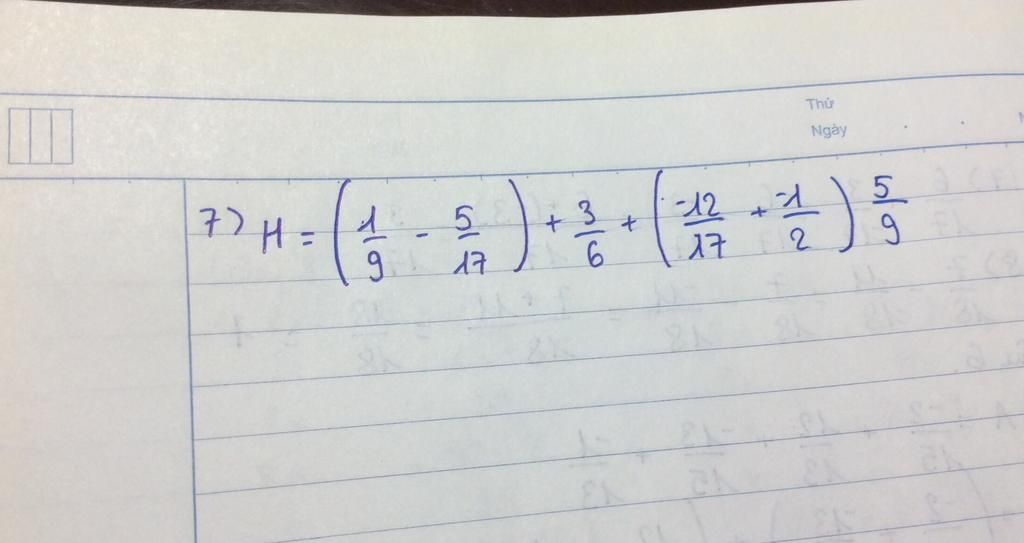 Thứ
Ngày
7) H = (1/9 - 5/17) + 3/6 + (-12/17 + -1/2) 5/9